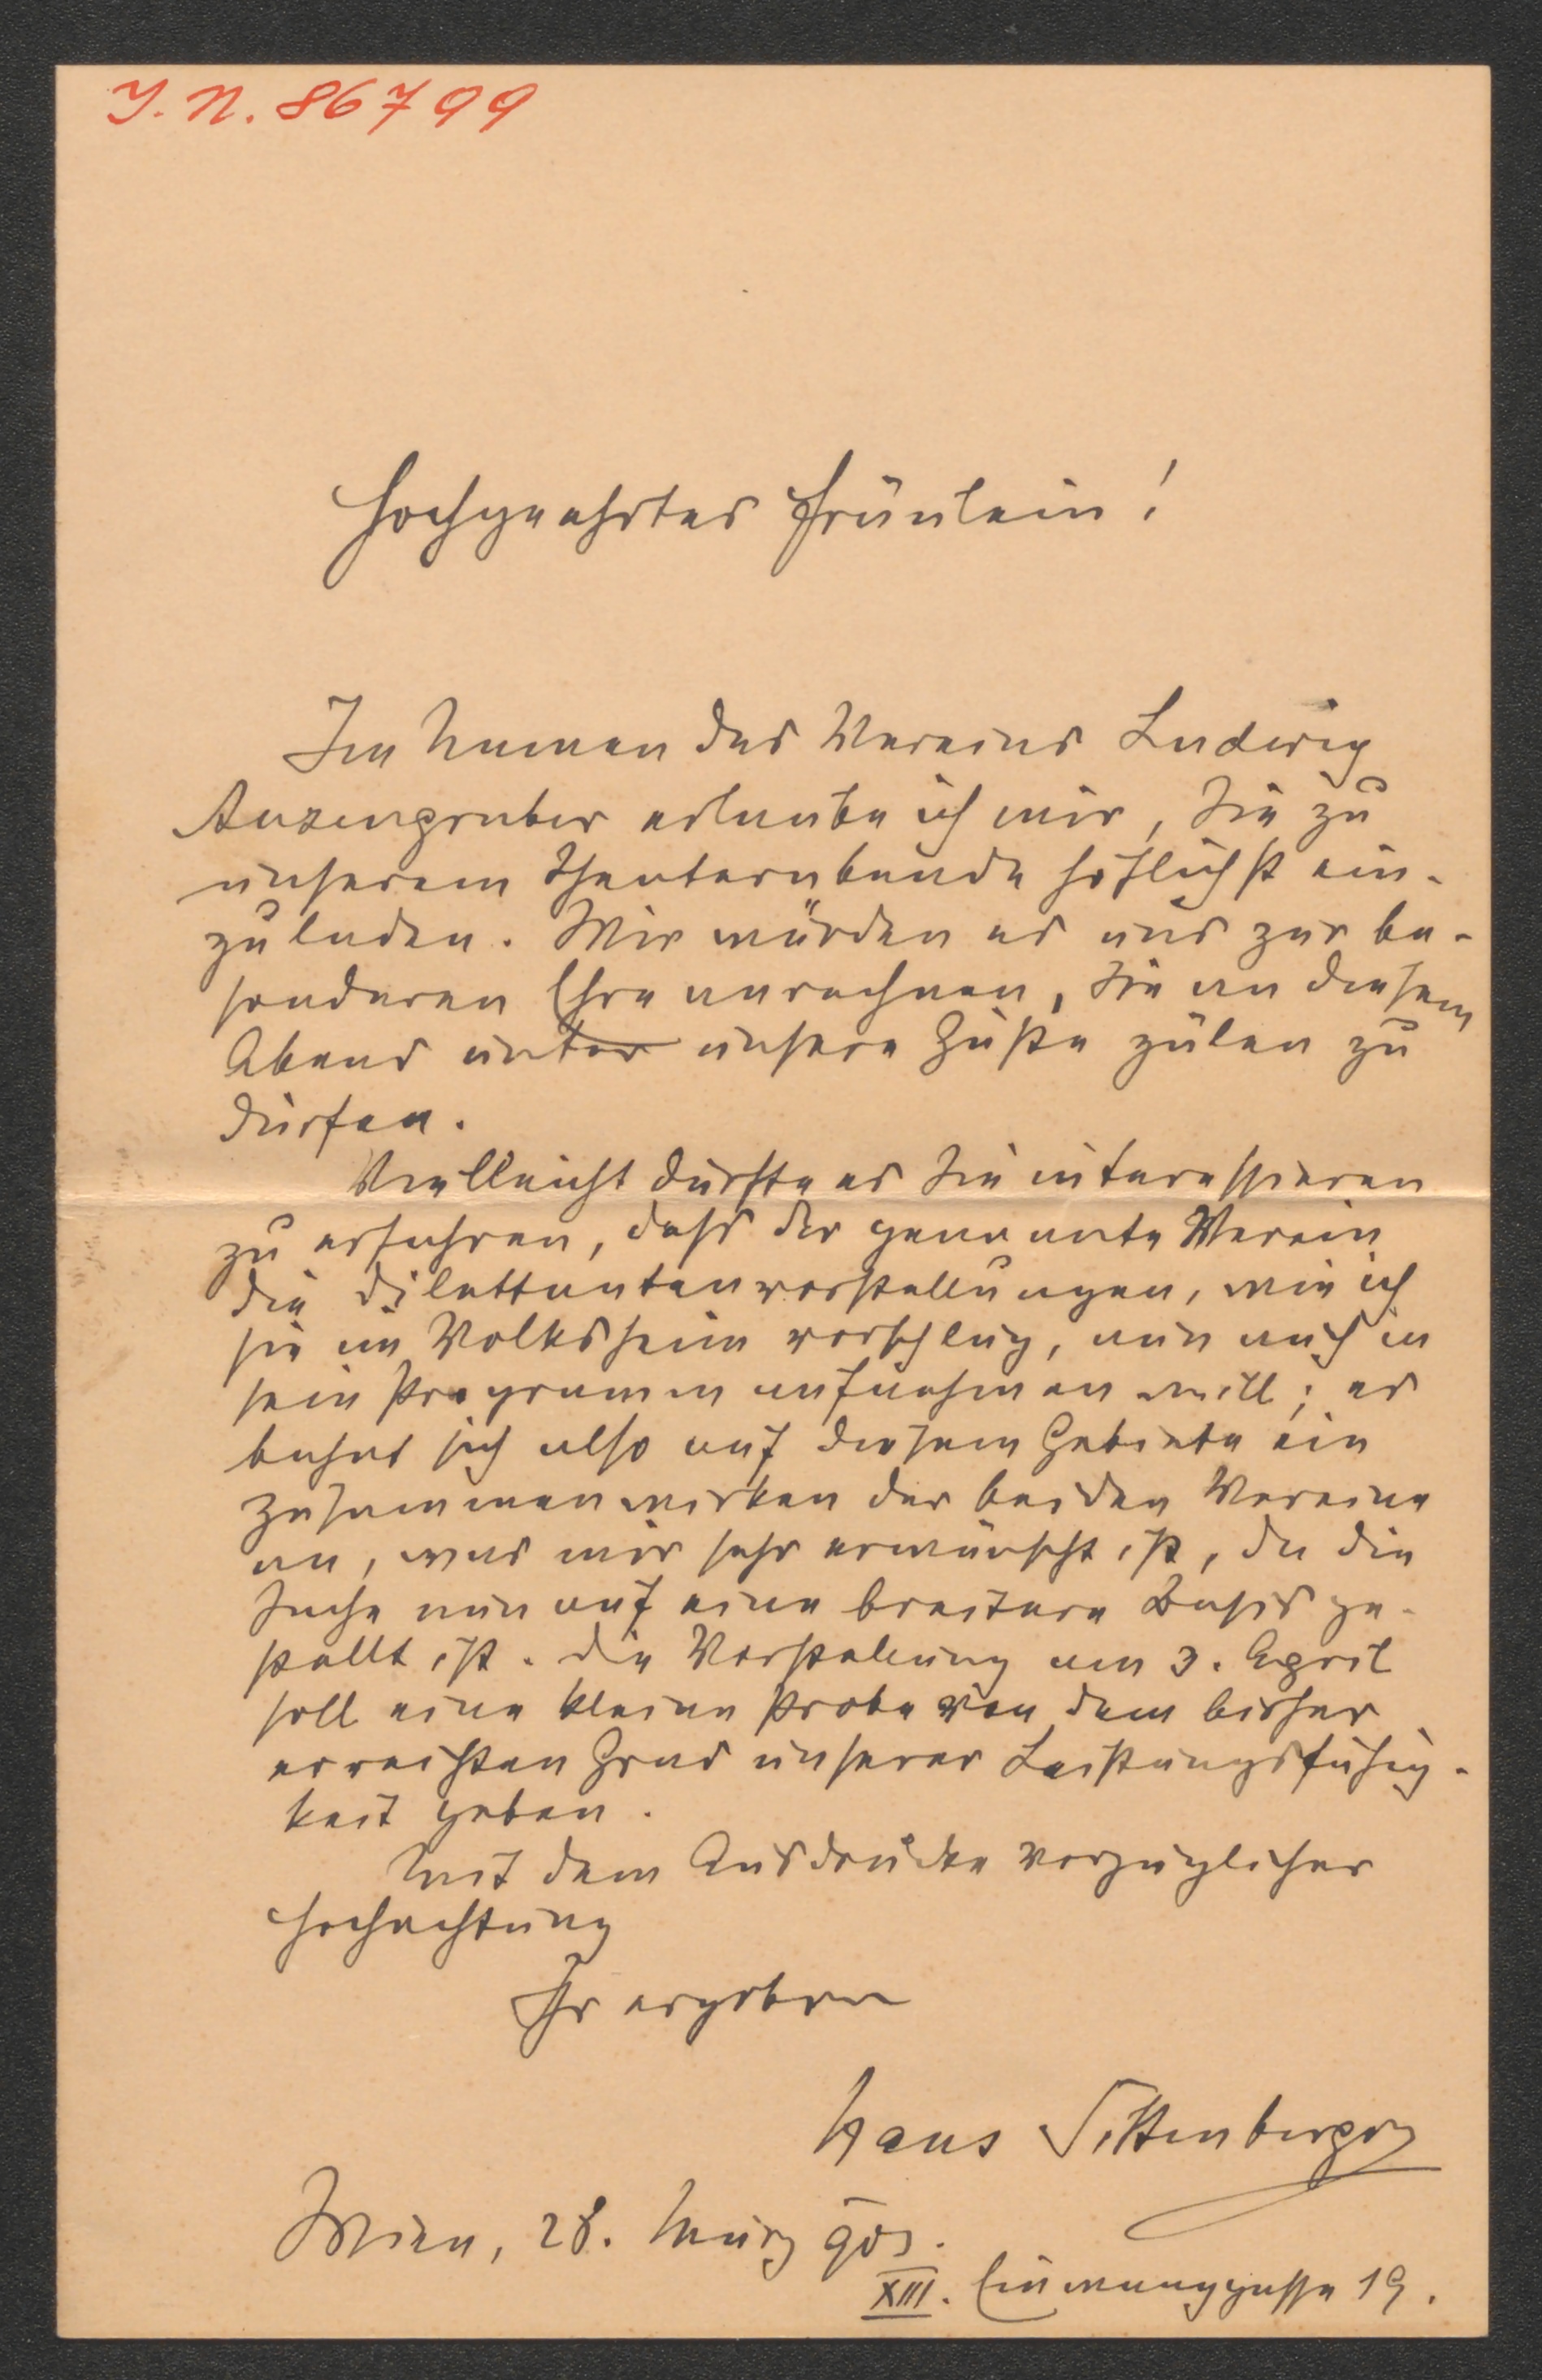 I. N. 86799
Hochgeehrtes Fräulein!
Im Namen des Vereines Ludwig
Anzengruber erlaube ich mir, Sie zu
unserem Theaterabende höflichst ein-
zuladen. Wir würden es uns zur be-
sonderen Ehre anrechnen, Sie an diesem
Abend unter unsere Gäste zälen zu
dürfen.
Vielleicht dürfte es Sie interessieren
zu erfahren, dass der genannte Verein
die Dilettantenvorstellungen, wie ich
sie im Volksheim vorschlug, nun auch in
sein Programm aufnehmen will; es
bahnt sich also auf diesem Gebiete ein
Zusammenwirken der beiden Vereine
an, was mir sehr erwünscht ist, da die
Sache nun auf eine breitere Basis ge-
stellt ist. Die Vorstellung am 3. April
soll eine kleine Probe von dem bisher
erreichten Grad unserer Leistungsfähig-
keit geben.
Mit dem Ausdrucke vorzüglicher
Hochachtung
Ihr ergebener
Hans Sittenberger
Wien, 28. März 903.
XIII. Einwanggasse 19.